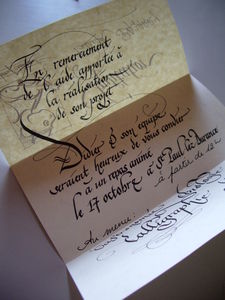 En remerciement
de l'aide apportée à
la réalisation
de son projet
Didier & son équipe
seraient heureuse de vous convier
à un repas animé
le 17 octobre à St Paul lez Durance
à partir de 12 h
Au menu :
Calligraphie